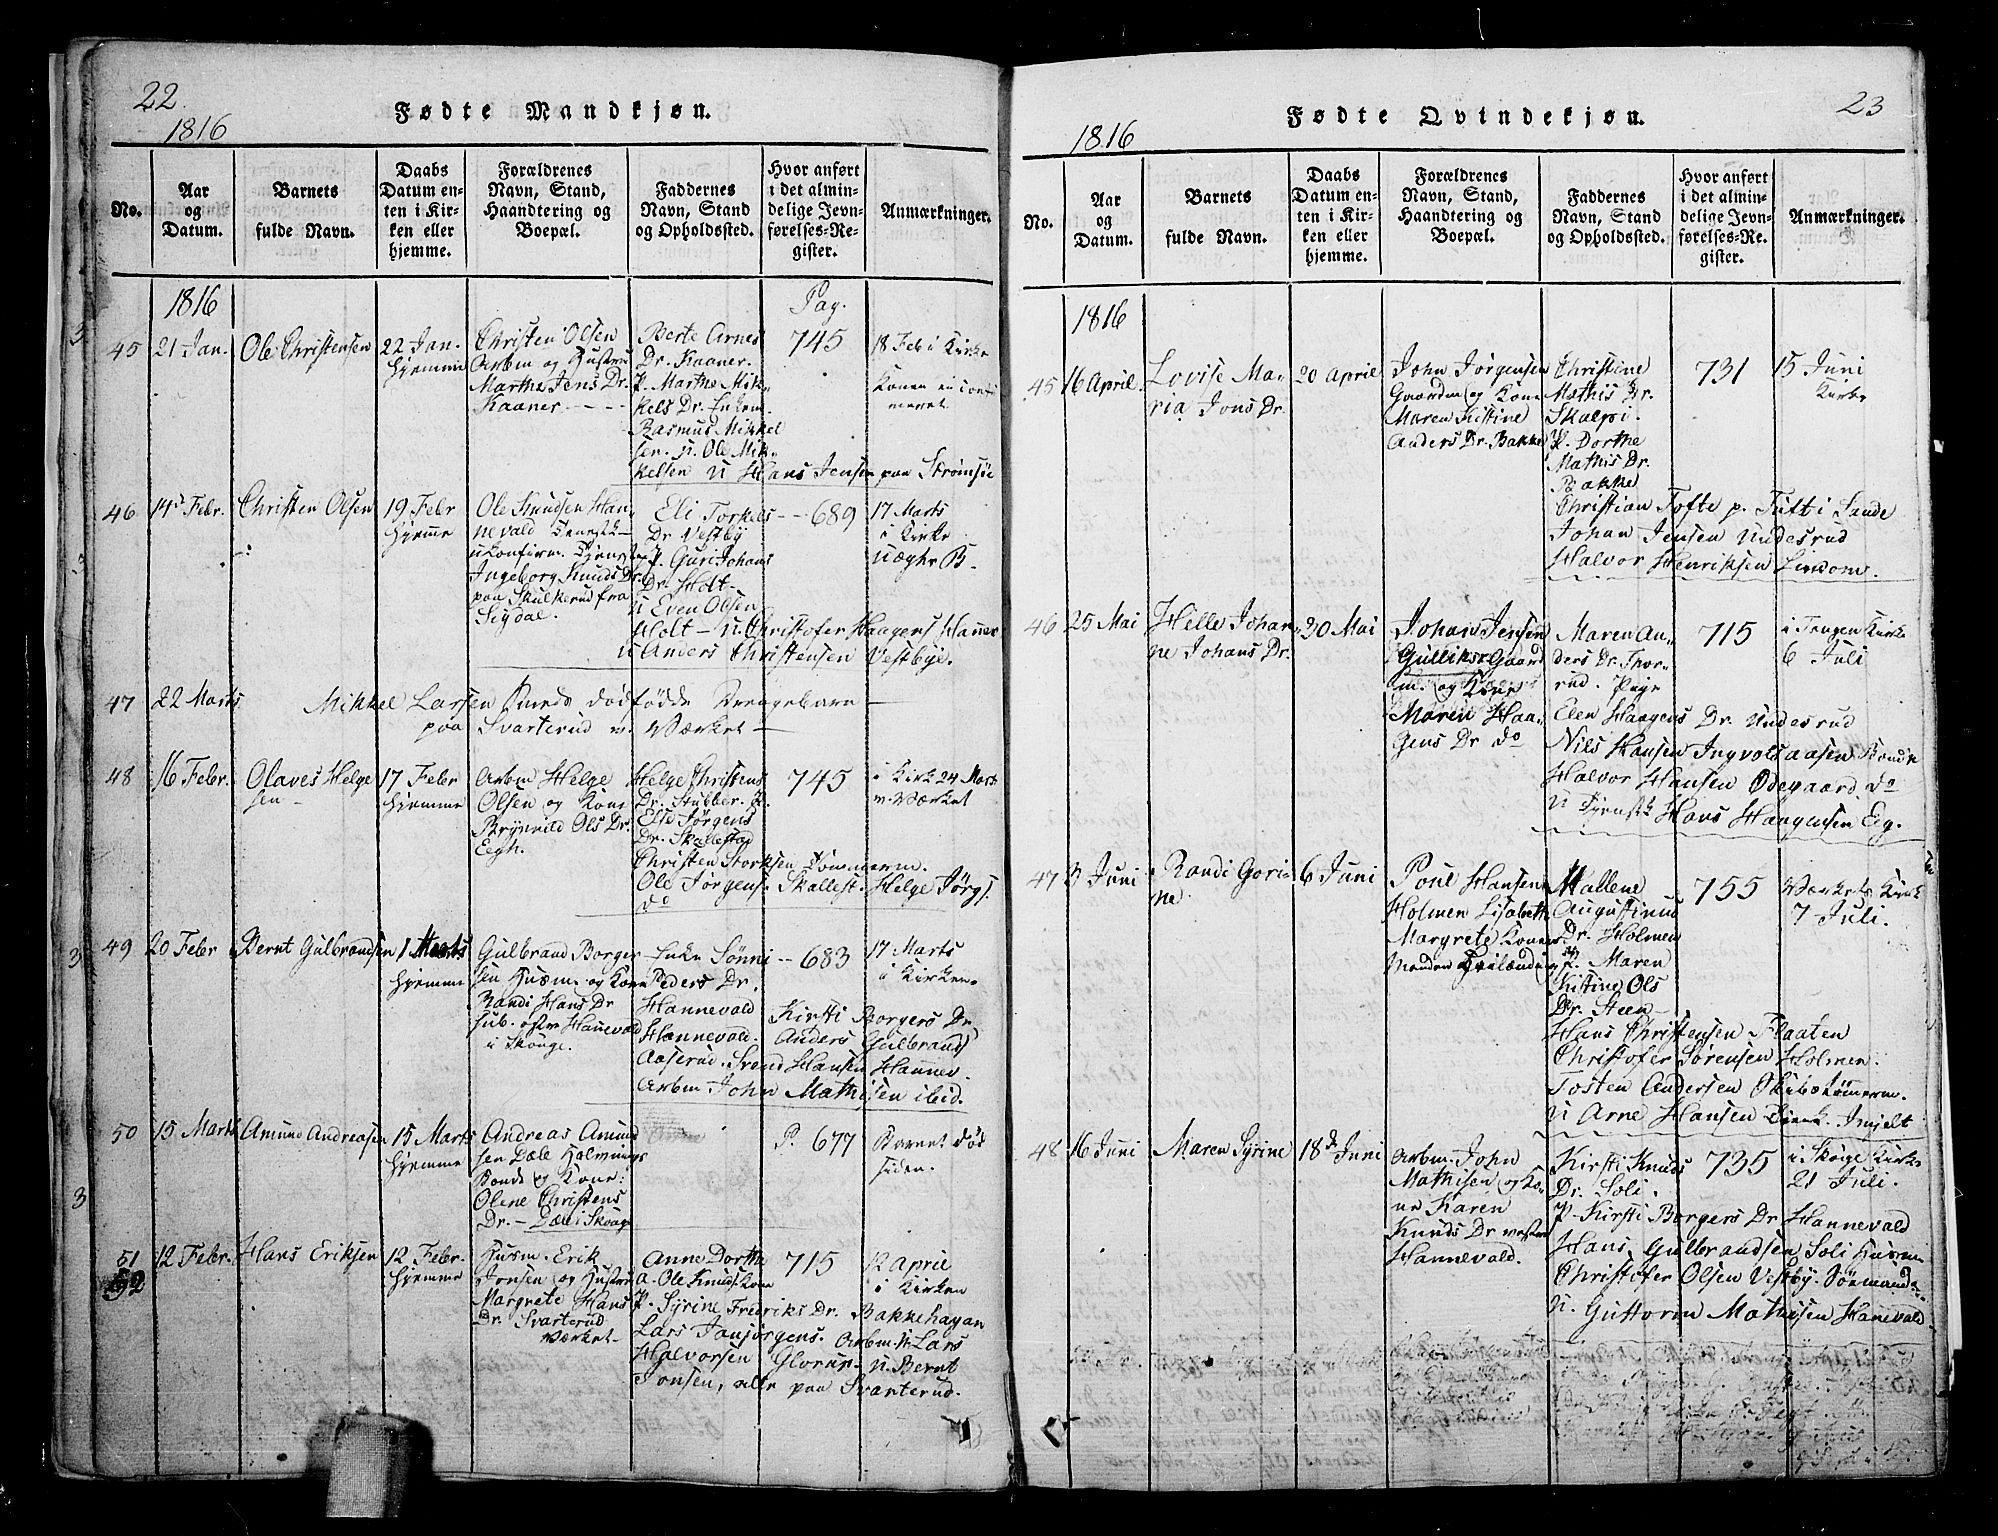 22.
Fødte Mandkjøn.
1816
No.
Aar
og
Datum.
Barnets
fulde Navn.
Daabs
Datum en-
ten i Kir-
ken eller
hjemme.
Forældrenes
Navn, Stand,
Haandtering og
Boepæl.
Faddernes
Navn, Stand
og Opholdssted.
Hvor anført
i det almin-
delige Jevn-
førelses-Re-
gister.
Anmærkninger.
1816
Pag.
45
21 Jan.
Ole Christensen
22 Jan.
hjemme
Christen Olsen
Arbm og Hustru
Marthe Jens Dr.
Kaaner
Berte Arnes
Dr. Kaaner.
P. Marthe Mik-
kels Dr. Enkem.
Rasmus Mikkel
sen. u. Ole Mik-
kelsen u Hans Jensen paa Strømsøe
745
18 Feb i Kirke
Konen
46
14d Febr.
Christen Olsen
19 Febr
hjemme
Ole Knudsen Han-
nevald
ukonfirm.
Ingeborg Knuds Dr.
paa Skulkerud fra
Sigdal.
Eli Torkels
Dr Vestby
P. Guri Johans
Dr. Holt
u Even Olsen
Holt u. Christofer Haagens Hannev
u Anders Christensen Vestbye.
689
17 Marts
i Kirke
uægte B.
47
22 Marts
Mikkel Larsen dødfødde Drengebarn
paa Svarterud v. Værket
48
16 Febr.
Olaves Helge
sen
17 Febr
hjemme
Arbm Helge
Olsen og Kone
Brynild Ols Dr.
Eegh.
Helge Christens
Dr. Stubber. P.
Elid Jørgens
Dr. Skallestad
Christen Storksen Tømmerm.
Ole Jørgens. Skallest. Helge Jørgs.
do
745
i Kirk 24 Marts
v. Værket
49
20 Febr
Bernt Gulbrandsen
1 Marts
hjemme
Gulbrand Borger
sen Husm. og Kone
Randi Hans Dr
Hanevald
i Skouge.
Enke Sønni
Peders Dr.
Hannevald
Kirsti Borgers Dr
Hannevald. Anders Gulbrands
Aaserud. Svend Hansen Hannev.
Arbm John Mathisen ibid.
683
17 Marts
i Kirken
50
15 Marts
Amund Andreasen
15 Marts
hjemme
Andreas Amund
sen Dæle
Bonde og Kone:
Olene Christens
Dr. Dæle i Skoug
P. 677
Barnet død
siden.
51
52
12 Febr.
Hans Eriksen
12 Febr.
hjemme
Husm. Erik
Jonsen og Hustru
Margrete Hans
Dr. Svarterud
Værket
Anne Dorthe
a. Ole Knuds Kone
P. Syrine Fredriks Dr. Bakkehagan
Lars Janjørgens. Arbm u. Lars
Halvorsen Glorup u. Bernt
Jonsen, alle paa Svarterud.
715
12 April
i Kirken
23
Fødte Qvindekjøn.
1816
No.
Aar
og
Datum.
Barnets
fulde Navn.
Daabs
Datum en-
ten i Kir-
ken eller
hjemme.
Forældrenes
Navn, Stand,
Haandtering og
Boepæl.
Faddernes
Navn, Stand
og Opholdssted.
Hvor anført
i det almin-
delige Jevn-
førelses-Re-
gister.
Anmærkninger.
1816
45
16 April
Lovise Ma-
ria Jons Dr.
20 April
John Jørgensen
Gaardm og Kone
Maren Kistine
Anders Dr. Bakke
Christine
Mathis Dr.
Skalpi.
P. Dorthe
Mathis Dr.
Bakke
Christian Tofte p. Tuft i Sande
Johan Jensen Undesrud
Halvor Henriksen Lindom.
731
15 Juni
Kirke
46
25 Mai
Helle Johan-
ne Johans Dr.
20 Mai
Johan Jensen
Gulliksr. Gaard
m. og Kone
Maren Haa-
gens Dr do
Maren An-
ders Dr. Thor-
rud. Pige
Elen Haagens Dr. Undesrud
Nils Hansen Ingvolsaasen Bonde
Halvor Hansen Ødegaard. do
u Tjenestk Hans Haagensen Eeg.
715
i Tangen Kirke
6 Juli
47
3 Juni
Randi Gori-
ne.
6 Juni
Poul Hansen
Holmen Lisabeth
Margrete Kone
Manden
Mallene
Augustinus
Dr. Holmen
P. Maren
Kistine Ols
Dr. Steen
Hans Christensen Flaaten
Christofer Sørensen Holmen.
Tosten Andersen Skibstømerm.
u Arne Hansen
755
Værkets Kirk
7 Juli.
48
16 Juni
Maren Syrine
18d Juni
Arbm. John
Mathisen og Ko-
ne Karen
Knuds Dr
Hannevald.
Kirsti Knuds
Dr. Soli.
P. Kirsti Borgers Dr Hannevald
Hans Gulbrandsen Soli Husm
Christofer Olsen Vestby.
u. Guttorm Mathisen Hanevald
735
i Skoge Kirke
21 Juli.